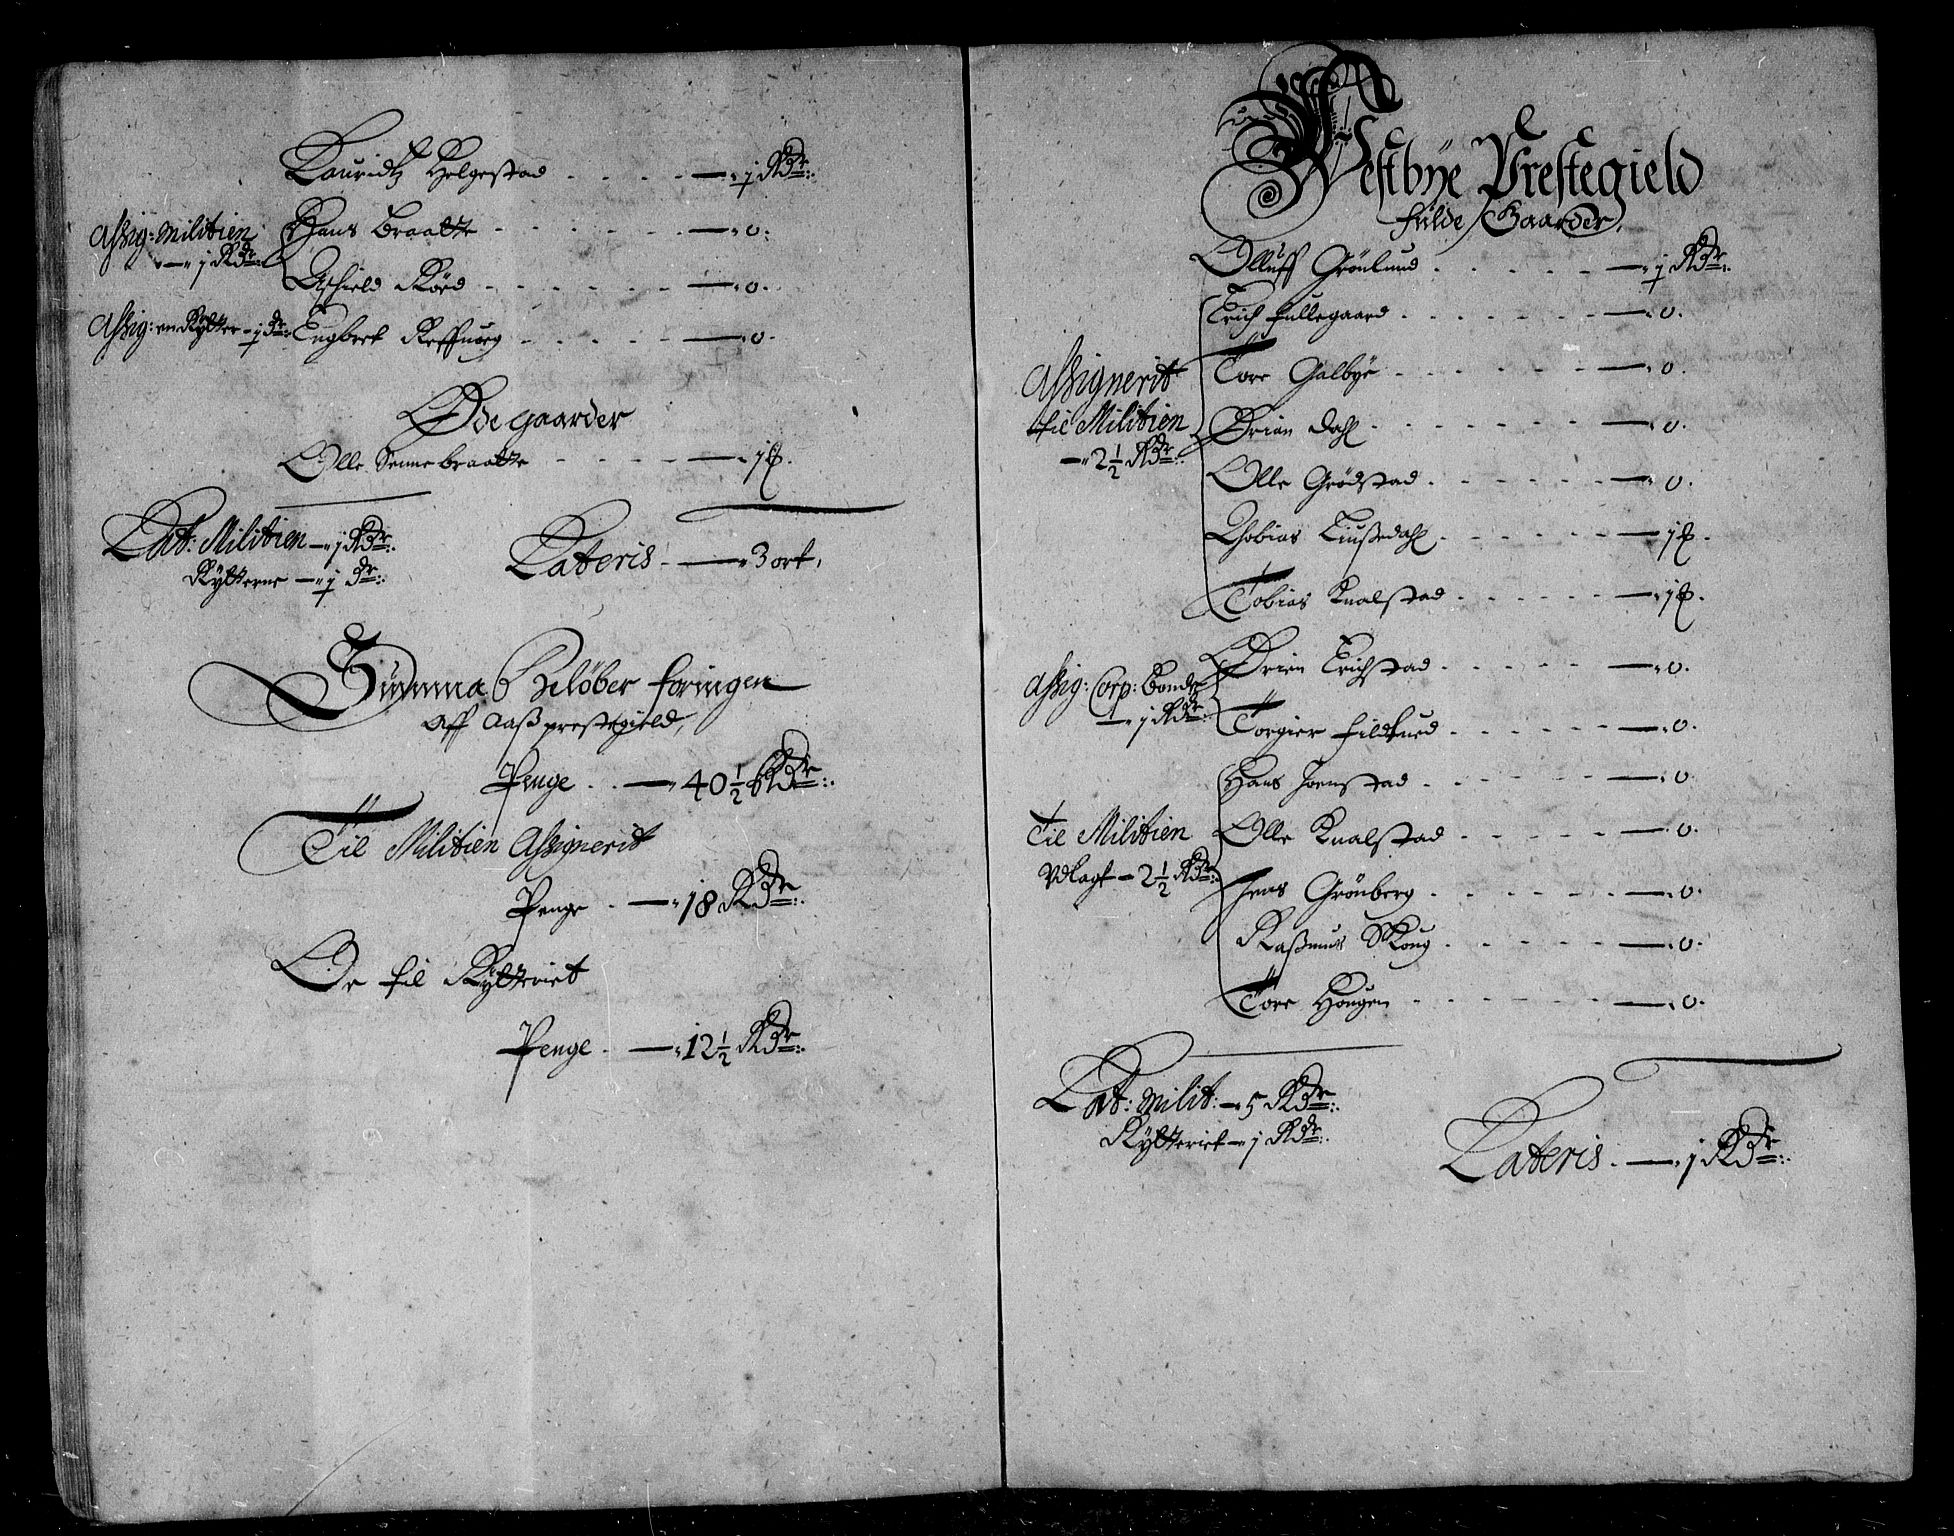 Lauridtz Helgestad . . . . — " 1 Rdr:
Assig: Militien
— " 1 Rdr:
Hans Braatte . . . . — " 0.
Aschield Röed . . . . — " 0.
Assig: en Rytter - 1 dr:
Engbret Reffnoeg . . . . — " 0.
Ødegaarder
Olle Sennebraatte . . . . — " 1 ß.
Lat: Militien — " 1 Rdr:
Rytterne — " 1 dr:
Lateris. — " 3 ort,
Summa Belöber foringen
Aff Aaß prestegield,
Penge . . — " 40 1/2 Rdr:
Til Militien Assignerit
Penge . — " 18 Rdr:
Oc til Rytteriet
Penge . — " 12 1/2 Rdr:
Westbye Prestegield
fulde Gaarder.
Olluff Grönlund . . . . — " 1 Rdr:
Erich fullegaard . . . . — " 0.
Assignerit
til Militien
— " 2 1/2 Rdr:
Tore Galbye . . . . — " 0.
Örien Dahl . . . . — " 0.
Olle Grödstad . . . . — " 0.
Thobias Liußedahl . . . . — 1 ß.
Tobias Knalstad . . . . — " 1 ß.
Assig: Corp: Bonde
— " 1 Rdr:
Örien Erichstad . . . . — " 0.
Torgier fildtued . . . . — " 0.
Hans Joenstad . . — " 0.
Til Militien
Vdlagt — 2 1/2 Rdr:
Olle Knalstad . . . . — " 0.
Jens Grönberg . . . . — " 0.
Raßmus Skoug . . . . — " 0.
Tore Hougen . . . . — " 0.
Lat: Milit: — " 5 Rdr:
Rytteriet — " 1 Rdr:
Lateris . — " 1 Rdr: